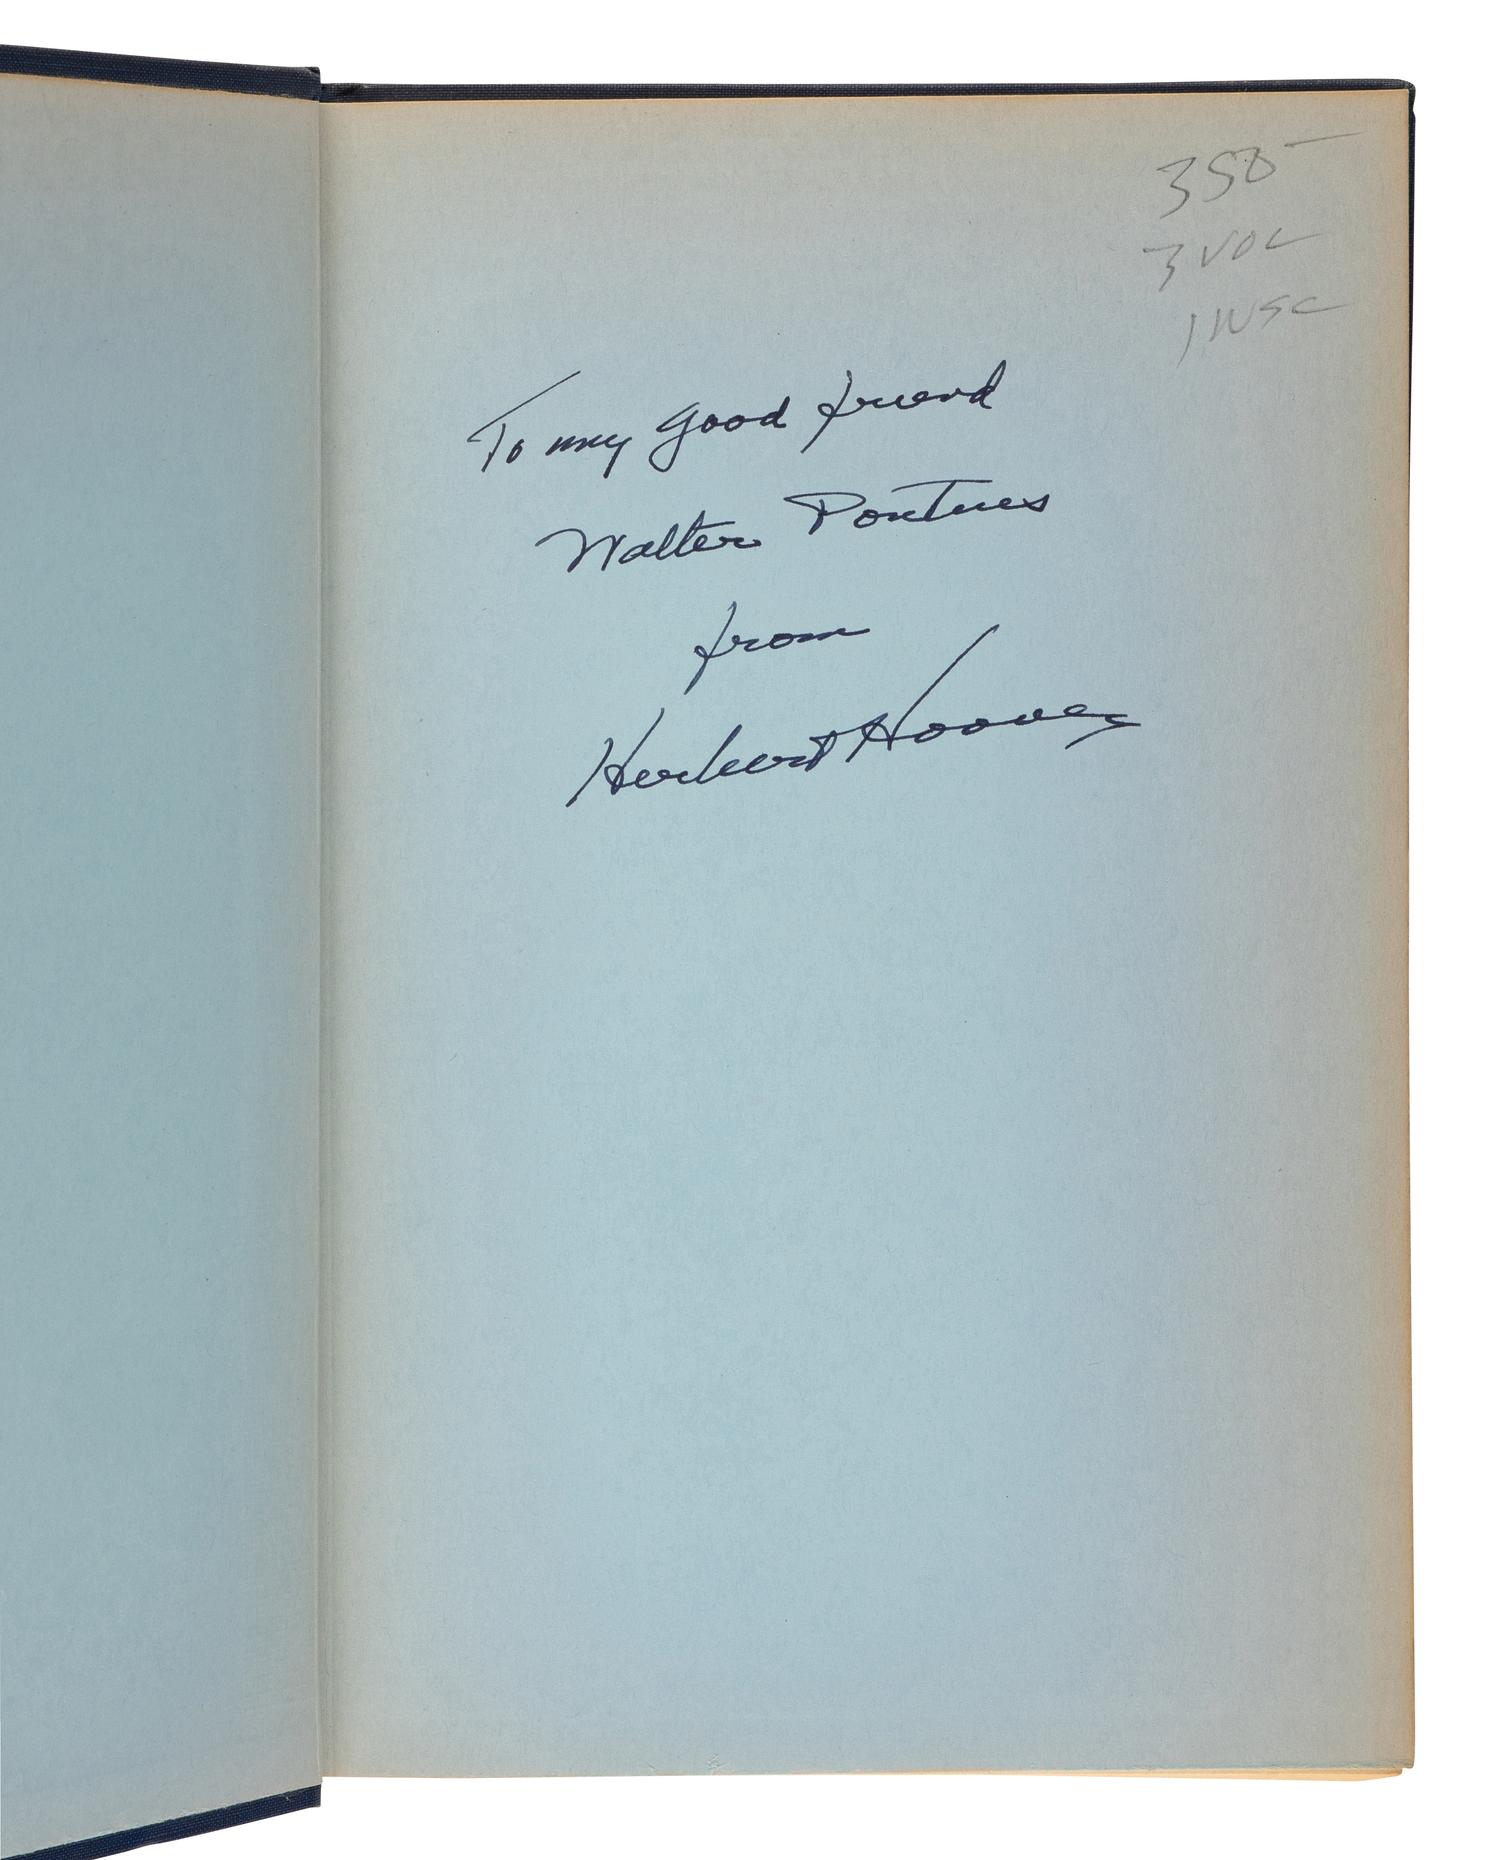 350-
3 VOL
1 INSC
To my good friend
Walter Pontius
from
Herbert Hoover